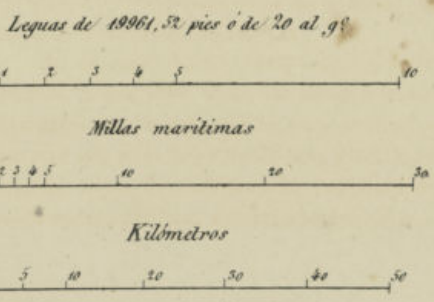 Leguas de 19961,52 pies ó de 20 al g.º
1 2 3 4 5 10
Millas marítimas
2 3 4 5 10 20 30
Kilómetros
5 10 20 30 40 50